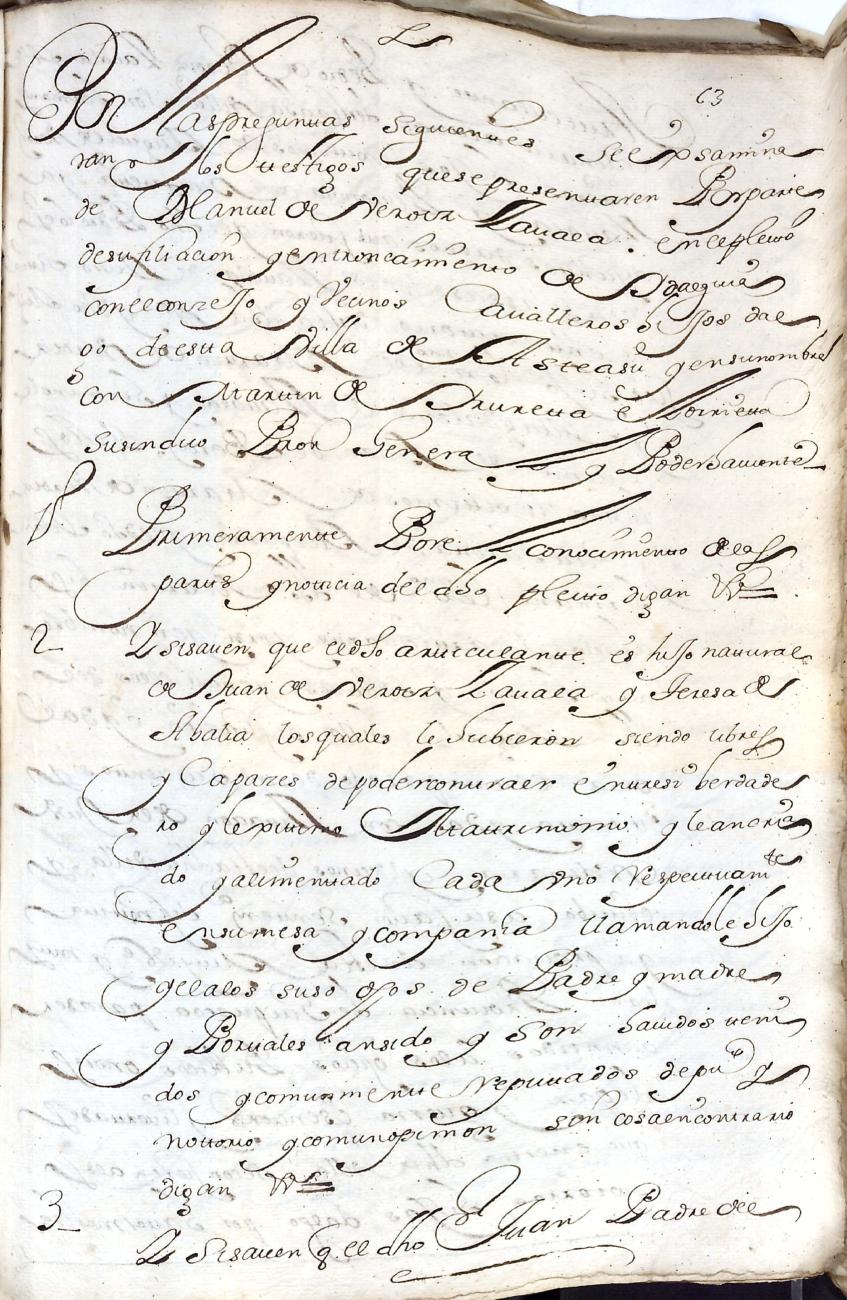 63
Por las preguntas siguientes se exsamina
ran los testigos que se presentaren Por parte
de Manuel de Verotr Zavala en el pleito
de su filiacion y entroncamiento de Ydalguia
con el conzejo y Vecinos Cavalleros hijos dal
go de esta Villa de Asteasu y en su nombre
con Martin de Yrureta e Lorrieta
su sindico Pror General y Poderhaviente
1 Primeramente Por el conocimiento de las
partes y noticia del dho pleito digan
2 Y si saven que el dho articulante es hijo natural
de Juan de Verotr Zavala y Teresa de
Abalia los quales le hubieron siendo libres
y Capazes de poder contraer entre si berdade
ro y lexitimo Matrimonio y le an cria
do y alimentado Cada Vno Respectivamte
en su mesa y compania llamandole hijo
y el a los suso dhos de Padre y madre
y Por tales an sido y son havidos teni
dos y comunmente reputados de puco y
nottorio y comun opinion sin cosa en contrario
digan
3 Y si saven q el dho Juan Padre del